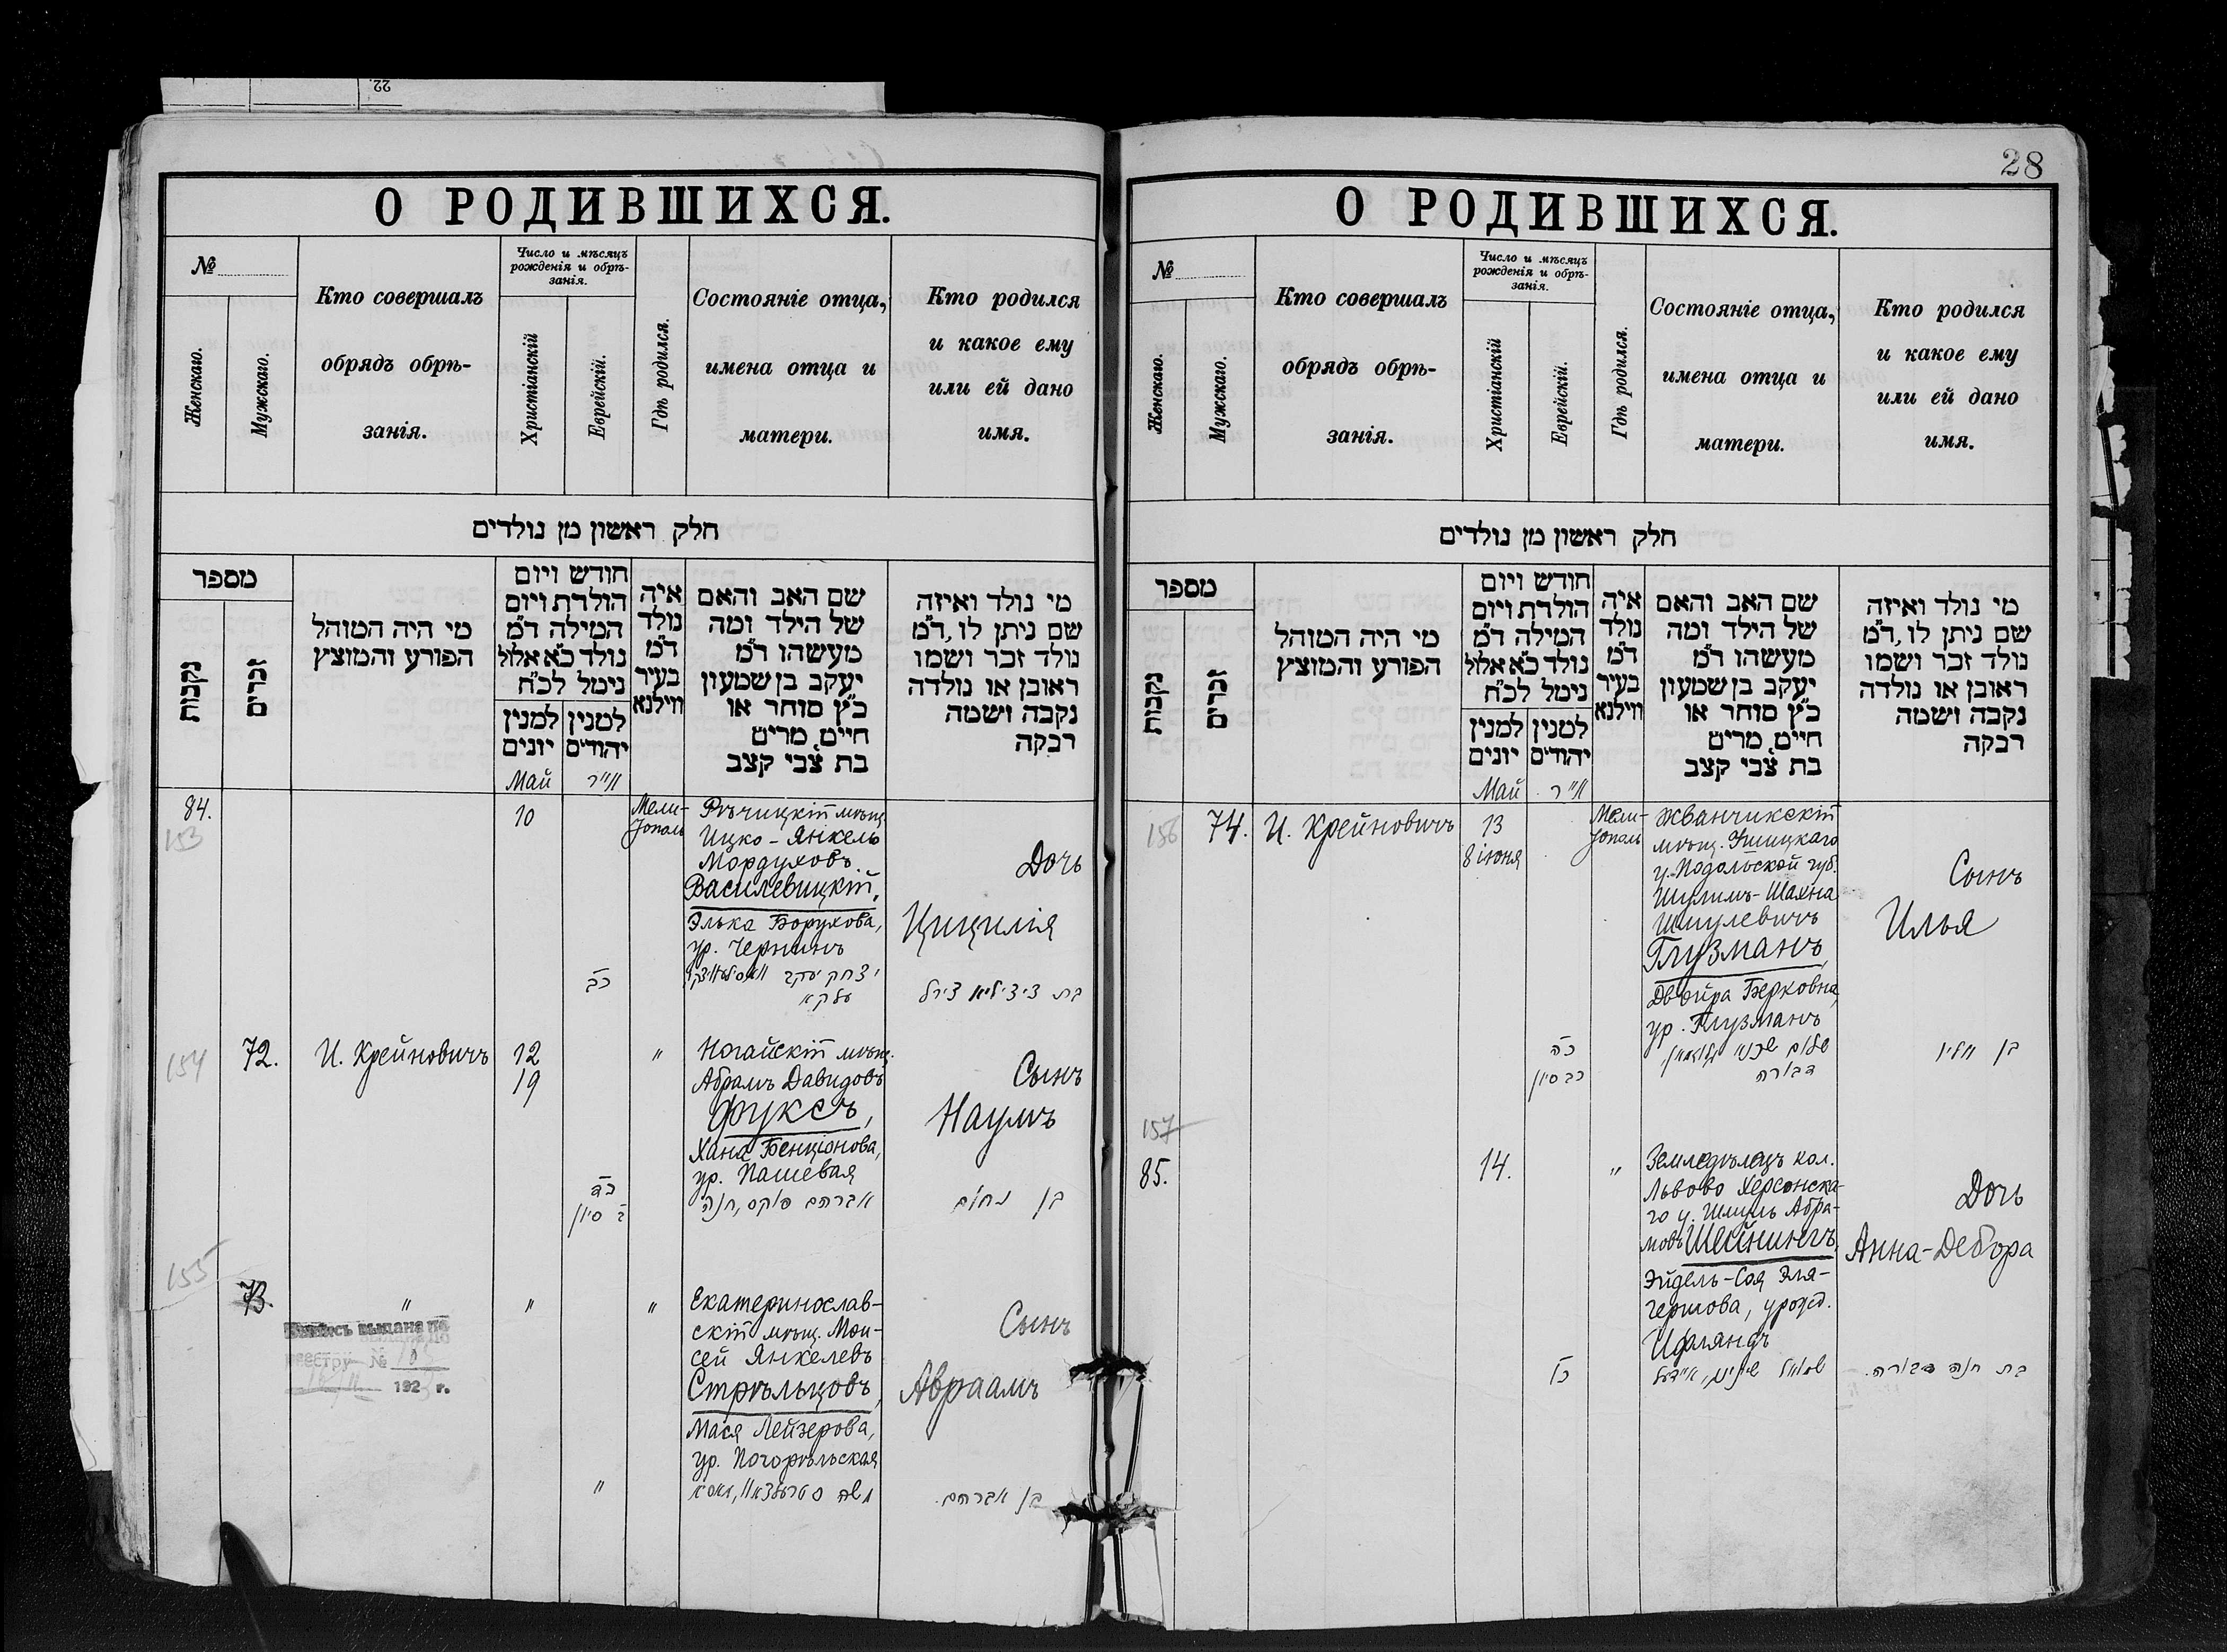 22.
О РОДИВШИХСЯ.
№
Женскаго.
Мужскаго.
Кто совершалъ
обрядъ обрѣ-
занія.
Число и мѣсяцъ
рожденія и обрѣ-
занія.
Христіанскій
Еврейскій.
Гдѣ родился.
Состояніе отца,
имена отца и
матери.
Кто родился
и какое ему
или ей дано
имя.
חלק ראשון מן נולדים
מספר
נקבות
זכרים
מי היה המוהל
הפורע והמוצץ
חודש ויום
הולדת ויום
המילה ד״מ
נולד כ״א אלול
נימל לכ״ח
למנין
יונים
למנין
יהודים
איה
נולד
ד״מ
בעיר
ווילנא
שם האב והאם
של הילד ומה
מעשהו ד״מ
יעקב בן שמעון
כ״ץ סוחר או
חייט, מרים
בת צבי קצב
מי נולד ואיזה
שם ניתן לו, ד״מ
נולד זכר ושמו
ראובן או נולדה
נקבה ושמה
רבקה
Май
אייר
84.
153
10
Мели-
тополь
Рѣчицкій мѣщ.
Ицко-Янкель
Мордуховъ
Василевицкій,
Элька Борухова,
ур. Чернинъ
Дочь
Цицилія
כב
יצחק יעקב
עלקא
בת ציציליא צירל
154
72.
И. Крейновичъ
12
19
"
Ногайскій мѣщ.
Абрамъ Давидовъ
Фуксъ,
Хана Бенціонова,
ур. Пашевая
Сынъ
Наумъ
כד
ב סיון
אברהם פוקס, חנה
בן נחום
155
73.
"
"
"
Екатеринослав-
скій мѣщ. Мои-
сей Янкелевъ
Стрѣльцовъ,
Мася Лейзерова,
ур. Погорѣльская
Сынъ
Авраамъ
выдана по
реестру №
192 г.
"
משה
בן אברהם
28
О РОДИВШИХСЯ.
№
Женскаго.
Мужскаго.
Кто совершалъ
обрядъ обрѣ-
занія.
Число и мѣсяцъ
рожденія и обрѣ-
занія.
Христіанскій
Еврейскій.
Гдѣ родился.
Состояніе отца,
имена отца и
матери.
Кто родился
и какое ему
или ей дано
имя.
חלק ראשון מן נולדים
מספר
נקבות
זכרים
מי היה המוהל
הפורע והמוצץ
חודש ויום
הולדת ויום
המילה ד״מ
נולד כ״א אלול
נימל לכ״ח
למנין
יונים
למנין
יהודים
איה
נולד
ד״מ
בעיר
ווילנא
שם האב והאם
של הילד ומה
מעשהו ד״מ
יעקב בן שמעון
כ״ץ סוחר או
חייט, מרים
בת צבי קצב
מי נולד ואיזה
שם ניתן לו, ד״מ
נולד זכר ושמו
ראובן או נולדה
נקבה ושמה
רבקה
Май
אייר
156
74.
И. Крейновичъ
13
8 іюня
Мели-
тополь
Жванчикскій
мѣщ. Ушицкаго
у. Подольской губ.
Шулимъ-Шахна
Шмулевичъ
Глузманъ,
Двойра Берковна,
ур. Глузманъ
Сынъ
Илья
כה
כב סיון
שלום שכנא גלוזמאן,
דבורה
בן אליו
157
85.
14.
"
Земледѣлецъ кол.
Львово Херсонска-
го у. Шмуль Абра-
мовъ Шейнингъ,
Эйдель-Соя Эля-
Гершова, урожд.
Ифляндъ
Дочь
Анна-Дебора
כו
שמואל שיינינג, איידעל
בת חנה דבורה.